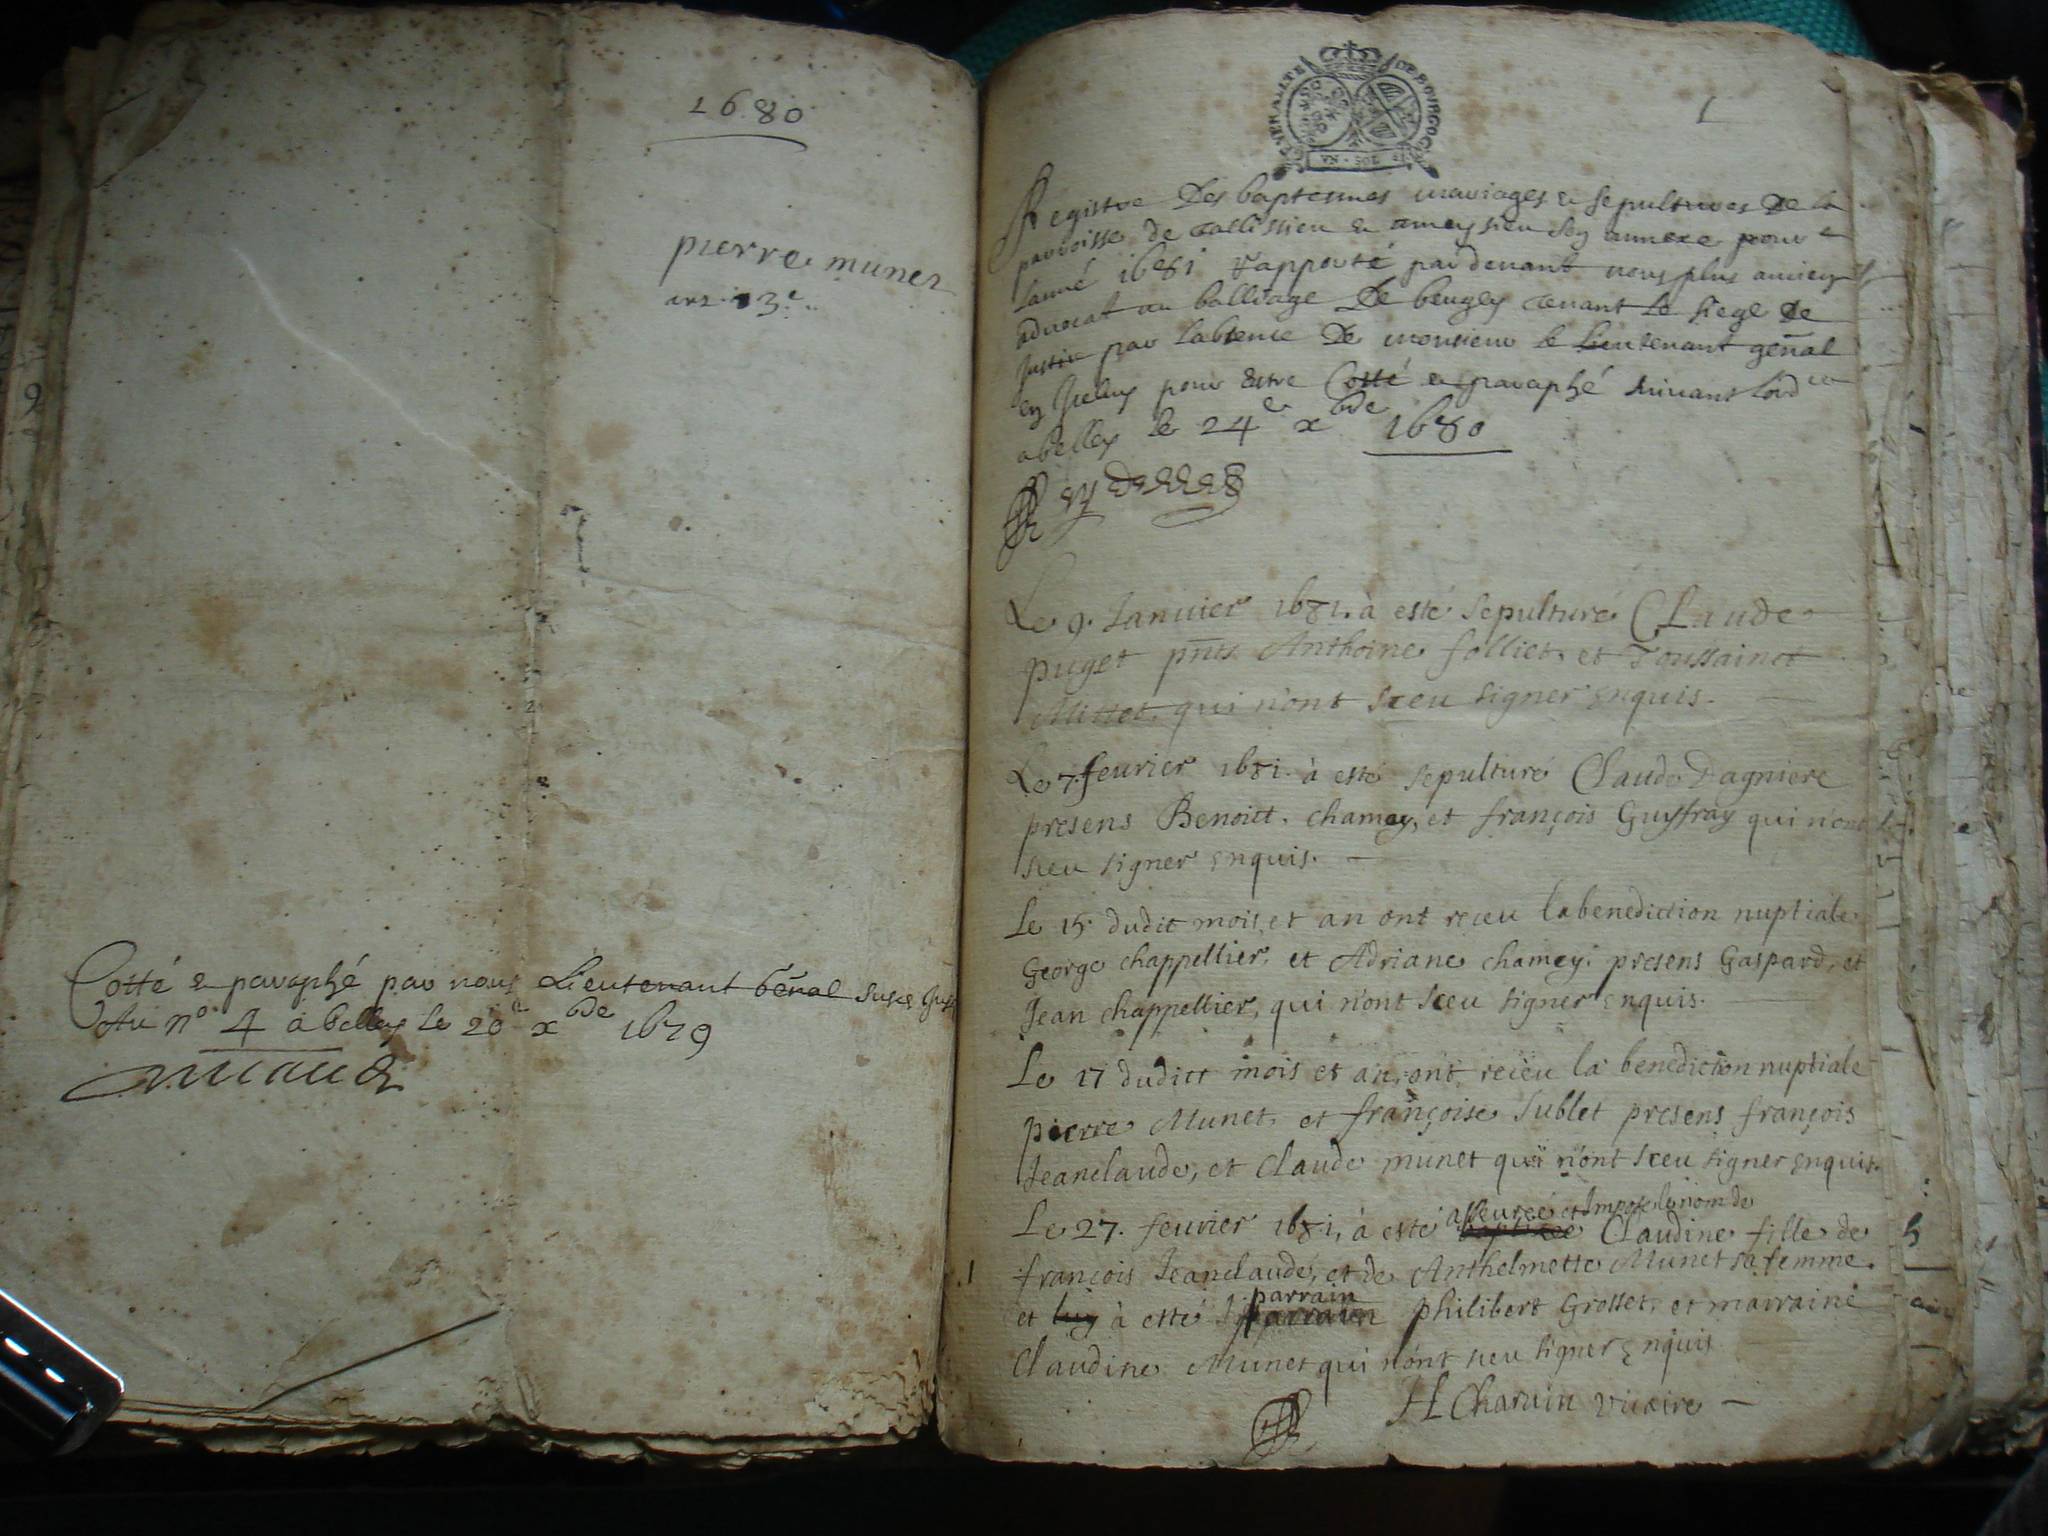 1680
pierre munet
Cotté & paraphé par nous Lieutenant genal
Au n° 4 a belley le 20e xbre 1679
GENERALITE DE BOURGOGNE
VN · SOL
1
Registre Des baptesmes mariages & sepultures De la
parroisse de tallissieu & ameysieu son annexe pour
lanné 1681 rapporté pardevant nous plus ancien
advocat au balliage De beugey tenant le siege de
Justice par labsence De monsieur le Lieutenant genal
pour Estre Cotté & paraphé suivant lord
a belley le 24e xbre 1680
Le 9. Janvier 1681. à esté sepulturé Claude
puget pnts Anthoine folliet, et Toussainct
Mittet, qui n'ont sceu signer enquis.
Le 7. fevrier 1681. à esté sepulturé Claude Dagniere
presens Benoitt. chamey, et françois Guyffray qui n'ont
sceu signer enquis.
Le 15. dudit mois, et an ont receu la benediction nuptiale
George chappellier, et Adriane chamey; presens Gaspard, et
Jean chappellier, qui n'ont sceu signer enquis.
Le 17 duditt mois et an, ont receu la benediction nuptiale
pierre Munet, et françoise sublet presens françois
Jeanclaude, et Claude munet qui n'ont sceu signer enquis.
asseuree et Imposé le nom de
Le 27. fevrier 1681, à esté baptizée Claudine fille de
1 françois Jeanclaude, et de Anthelmette Munet sa femme.
parrain
et luy à esté parrain philibert Grosset, et marraine
Claudine Munet qui n'ont sceu signer enquis
H Charvin vicaire